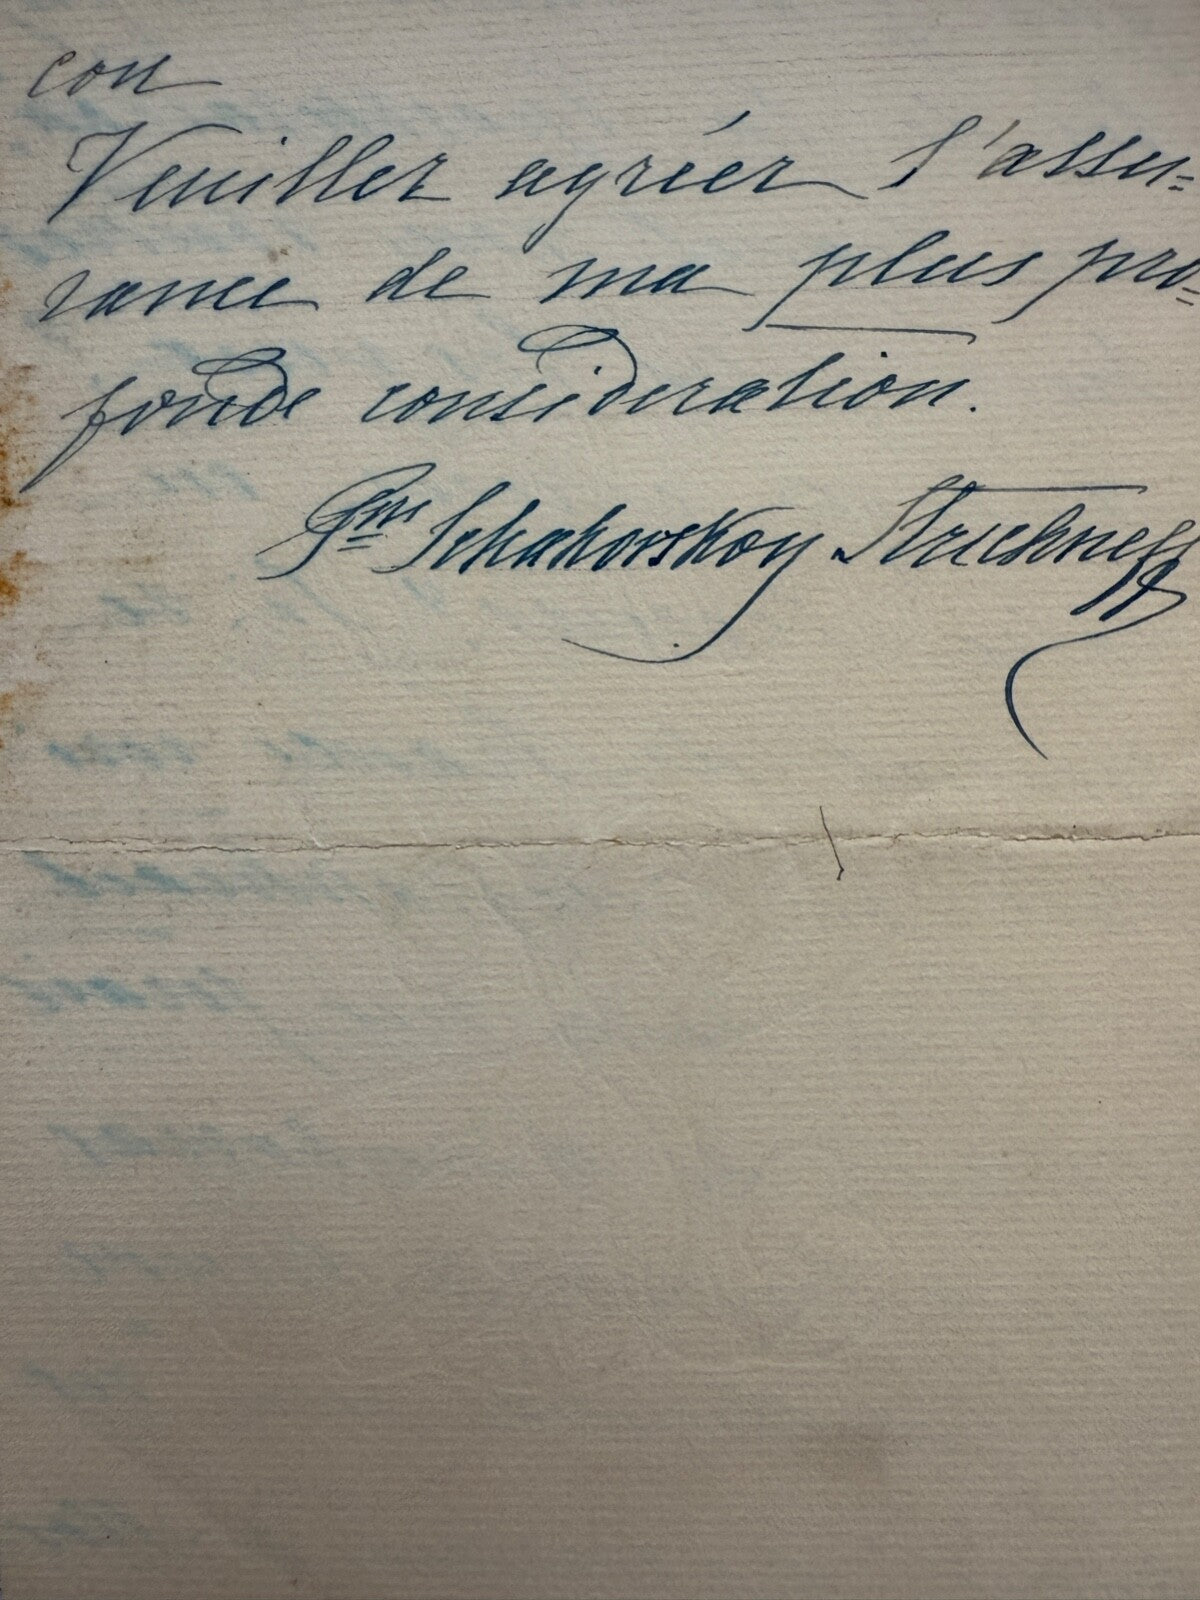 con
Veuillez agréer l'assu=
rance de ma plus pro=
fonde consideration.
Pce Schakovskoy Strechneff